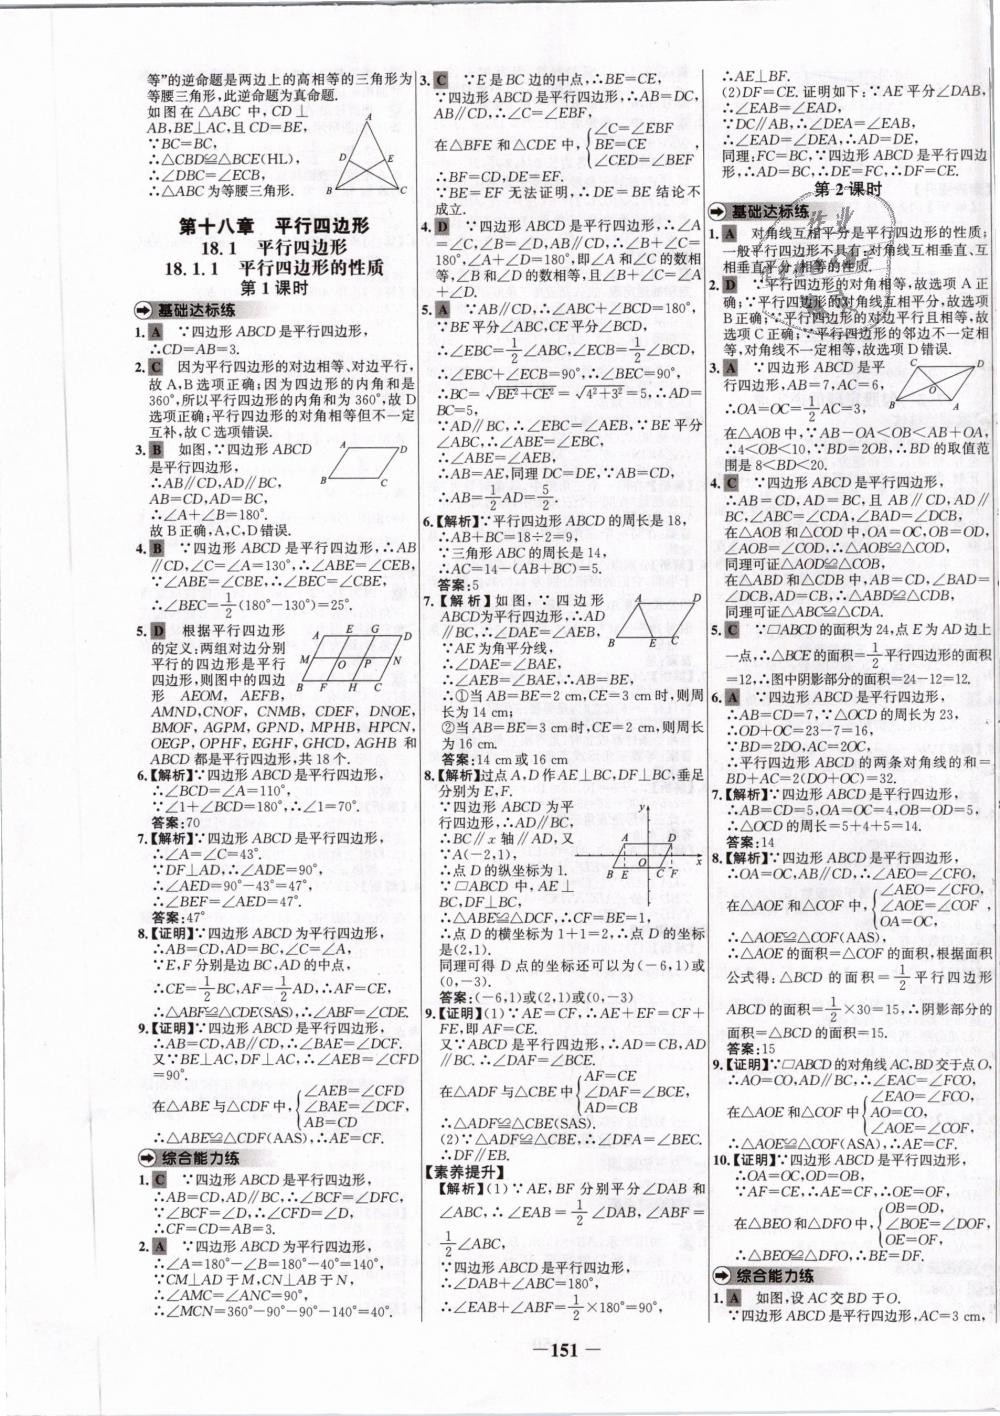 等”的逆命题是两边上的高相等的三角形为
等腰三角形,此逆命题为真命题.
如图在△ABC 中,CD⊥
AB,BE⊥AC,且CD=BE,
∵BC=BC,
∴△CBD≌△BCE(HL),
∴∠DBC=∠ECB,
∴△ABC为等腰三角形.
A
D
E
B
C
第十八章 平行四边形
18.1 平行四边形
18.1.1 平行四边形的性质
第1课时
基础达标练
1. A ∵四边形ABCD是平行四边形,
∴CD=AB=3.
2. C 因为平行四边形的对边相等、对边平行,
故A,B选项正确;因为四边形的内角和是
360°,所以平行四边形的内角和为360°,故D
选项正确;平行四边形的对角相等但不一定
互补,故C选项错误.
3. B 如图,∵四边形ABCD
是平行四边形,
∴AB∥CD,AD∥BC,
∴∠A=∠C,∠B=∠D,
∴∠A+∠B=180°.
故B正确,A,C,D错误.
A
D
B
C
4. B ∵四边形ABCD是平行四边形,∴AB
∥CD,∠C=∠A=130°,∴∠ABE=∠CEB,
∵∠ABE=∠CBE,∴∠BEC=∠CBE,
∴∠BEC=1/2(180°-130°)=25°.
5. D 根据平行四边形
的定义:两组对边分别
平行的四边形是平行
四边形,则图中的四边
形 AEOM, AEFB,
AMND,CNOF, CNMB, CDEF, DNOE,
BMOF,AGPM,GPND,MPHB,HPCN,
OEGP,OPHF,EGHF,GHCD,AGHB和
ABCD都是平行四边形,共18个.
A E G D
M O P N
B F H C
6.【解析】∵四边形ABCD是平行四边形,
∴∠BCD=∠A=110°,
∵∠1+∠BCD=180°,∴∠1=70°.
答案:70
7.【解析】∵四边形ABCD是平行四边形,
∴∠A=∠C=43°.
∵DF⊥AD,∴∠ADE=90°,
∴∠AED=90°-43°=47°,
∴∠BEF=∠AED=47°.
答案:47°
8.【证明】∵四边形ABCD为平行四边形,
∴AB=CD,AD=BC,∠C=∠A,
∵E,F分别是边BC,AD的中点,
∴CE=1/2BC,AF=1/2AD,∴AF=CE,
∴△ABF≌△CDE(SAS),∴∠ABF=∠CDE.
9.【证明】∵四边形ABCD为平行四边形,
∴AB=CD,AB∥CD,∴∠BAE=∠DCF.
又∵BE⊥AC,DF⊥AC,∴∠AEB=∠CFD
=90°.
在△ABE与△CDF中,{∠AEB=∠CFD
∠BAE=∠DCF,
AB=CD
∴△ABE≌△CDF(AAS),∴AE=CF.
综合能力练
1. C ∵四边形ABCD是平行四边形,
∴AB=CD,AD∥BC,∴∠BCF=∠DFC,
∵∠BCF=∠D,∴∠CFD=∠D,
∴CF=CD=AB=3.
2. A ∵四边形ABCD为平行四边形,
∴∠A=180°-∠B=180°-40°=140°,
∵CM⊥AD于M,CN⊥AB于N,
∴∠AMC=∠ANC=90°,
∴∠MCN=360°-90°-90°-140°=40°.
3. C ∵E是BC边的中点,∴BE=CE,
∵四边形ABCD是平行四边形,∴AB=DC,
AB∥CD,∴∠C=∠EBF,
在△BFE和△CDE中,{∠C=∠EBF
BE=CE
∠CED=∠BEF ,
∴BF=CD,DE=EF.
∵BE=EF无法证明,∴DE=BE结论不
成立.
4. D ∵四边形ABCD是平行四边形,∴∠A
=∠C,∠B=∠D,AB∥CD,∴∠B+∠C=
180°,∠A+∠D=180°,即∠A和∠C的数相
等,∠B和∠D的数相等,且∠B+∠C=∠A
+∠D.
5. A ∵AB∥CD,∴∠ABC+∠BCD=180°,
∵BE平分∠ABC,CE平分∠BCD,
∴∠EBC=1/2∠ABC,∠ECB=1/2∠BCD,
∴∠EBC+∠ECB=90°,∴∠BEC=90°,
∴BC=√BE²+CE²=√4²+3²=5,∴AD=
BC=5,
∵AD∥BC,∴∠EBC=∠AEB,∵BE平分
∠ABC,∴∠ABE=∠EBC,
∴∠ABE=∠AEB,
∴AB=AE,同理DC=DE,∵AB=CD,
∴AB=1/2AD=5/2.
6.【解析】∵平行四边形ABCD的周长是18,
∴AB+BC=18÷2=9,
∵三角形ABC的周长是14,
∴AC=14-(AB+BC)=5.
答案:5
7.【解析】如图,∵四边形
ABCD为平行四边形,∴AD
∥BC,∴∠DAE=∠AEB,
∵AE为角平分线,
∴∠DAE=∠BAE,
∴∠AEB=∠BAE,∴AB=BE,
∴①当AB=BE=2 cm,CE=3 cm时,则周
长为14 cm;
②当AB=BE=3 cm时,CE=2 cm,则周长
为16 cm.
答案:14 cm或16 cm
A
D
B
E
C
8.【解析】过点A,D作AE⊥BC,DF⊥BC,垂足
分别为E,F.
∵四边形ABCD为平
行四边形,∴AD∥BC,
∴BC∥x轴∥AD,又
∵A(-2,1),
∴点D的纵坐标为1.
∵□ABCD中,AE⊥
BC,DF⊥BC,
∴△ABE≌△DCF,∴CF=BE=1,
∴点D的横坐标为1+1=2,∴点D的坐标
是(2,1).
同理可得D点的坐标还可以为(-6,1)或
(0,-3).
答案:(-6,1)或(2,1)或(0,-3)
y
A
D
O
x
B E
C F
9.【证明】(1)∵AE=CF,∴AE+EF=CF+
FE,即AF=CE.
又∵ABCD是平行四边形,∴AD=CB,AD
∥BC.∴∠DAF=∠BCE.
在△ADF与△CBE中{AF=CE
∠DAF=∠BCE,
AD=CB
∴△ADF≌△CBE(SAS).
(2)∵△ADF≌△CBE,∴∠DFA=∠BEC.
∴DF∥EB.
【素养提升】
【解析】(1)∵AE,BF分别平分∠DAB和
∠ABC,∴∠EAB=1/2∠DAB,∠ABF=
1/2∠ABC,
∵四边形ABCD是平行四边形,
∴∠DAB+∠ABC=180°,
∴∠EAB+∠ABF=1/2×180°=90°,
∴AE⊥BF.
(2)DF=CE.证明如下:∵AE平分∠DAB,
∴∠EAB=∠EAD,
∵DC∥AB,∴∠DEA=∠EAB,
∴∠EAD=∠DEA,∴AD=DE,
同理:FC=BC,∵四边形ABCD是平行四边
形,∴AD=BC,∴DE=FC,∴DF=CE.
第2课时
基础达标练
1. A 对角线互相平分是平行四边形的性质;
一般平行四边形不具有:对角线互相垂直、互
相垂直平分、相等的性质.
2. D ∵平行四边形的对角相等,故选项A正
确;∵平行四边形的对角线互相平分,故选项
B正确;∵平行四边形的对边平行且相等,故
选项C正确;∵平行四边形的邻边不一定相
等,对角线不一定相等,故选项D错误.
3. A ∵四边形ABCD是平
行四边形,AB=7,AC=6,
∴OA=OC=1/2AC=3,
在△AOB中,∵AB-OA<OB<AB+OA,
∴4<OB<10,∵BD=2OB,∴BD的取值范
围是8<BD<20.
C
D
O
A
B
4. C ∵四边形ABCD是平行四边形,
∴AB=CD,AD=BC,且AB∥CD,AD∥
BC,∠ABC=∠CDA,∠BAD=∠DCB,
在△AOB和△COD中,OA=OC,OB=OD,
∠AOB=∠COD,∴△AOB≌△COD,
同理可证△AOD≌△COB,
在△ABD和△CDB中,AB=CD,∠BAD=
∠DCB,AD=CB,∴△ABD≌△CDB,
同理可证△ABC≌△CDA.
5. C ∵□ABCD的面积为24,点E为AD边上
一点,∴△BCE的面积=1/2平行四边形的面积
=12,∴图中阴影部分的面积=24-12=12.
6. A ∵四边形ABCD是平行四边形,
∴AB=CD=7,∵△OCD的周长为23,
∴OD+OC=23-7=16,
∵BD=2DO,AC=2OC,
∴平行四边形ABCD的两条对角线的和=
BD+AC=2(DO+OC)=32.
7.【解析】∵四边形ABCD是平行四边形,
∴AB=CD=5,OA=OC=4,OB=OD=5,
∴△OCD的周长=5+4+5=14.
答案:14
8.【解析】∵四边形ABCD是平行四边形,
∴OA=OC,AB∥CD,∴∠AEO=∠CFO,
在△AOE和△COF中,{∠AEO=∠CFO,
∠AOE=∠COF ,
OA=OC,
∴△AOE≌△COF(AAS),
∴△AOE的面积=△COF的面积,根据面积
公式得:△BCD的面积=1/2平行四边形
ABCD的面积=1/2×30=15,∴阴影部分的
面积=△BCD的面积=15.
答案:15
9.【证明】∵□ABCD的对角线AC,BD交于点O,
∴AO=CO,AD∥BC,∴∠EAC=∠FCO,
在△AOE和△COF中{∠EAO=∠FCO,
AO=CO,
∠AOE=∠COF,
∴△AOE≌△COF(ASA),∴AE=CF.
10.【证明】∵四边形ABCD是平行四边形,
∴OA=OC,OD=OB,
∵AF=CE,∴AE=CF,∴OE=OF,
在△BEO和△DFO中,{OB=OD,
∠BOE=∠DOF,
OE=OF,
∴△BEO≌△DFO,∴BE=DF.
综合能力练
1. A 如图,设AC交BD于O.
∵四边形ABCD是平行四边形,AC=3 cm,
—151—